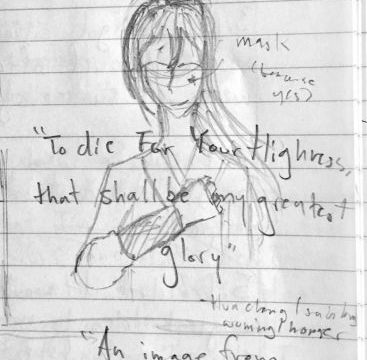 mask
(because
yes)
"To die For Your Highness,
that shall be my greatest
glory"
- Hua cheng /
wuming/honger
"An image from